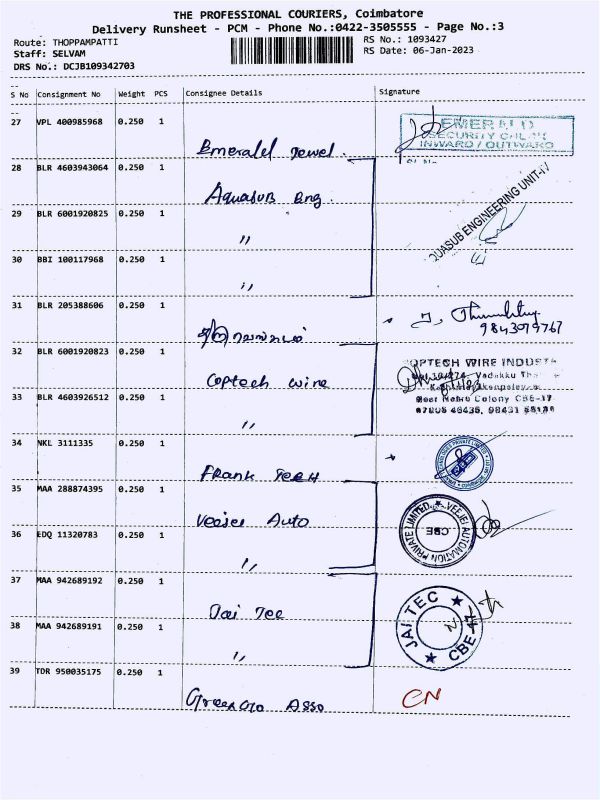 THE PROFESSIONAL COURIERS, Coimbatore
Delivery Runsheet - PCM - Phone No.:0422-3505555 - Page No.:3
Route: THOPPAMPATTI
RS No.: 1093427
Staff: SELVAM
RS Date: 06-Jan-2023
DRS No.: DCJB109342703
S No Consignment No Weight PCS Consignee Details Signature
27 VPL 400985968 0.250 1
Emerald Jewel.
EMERALD
SECURITY CHECK
INWARD / OUTWARD
28 BLR 4603943064 0.250 1
Aquasub Eng.
QUASUB ENGINEERING UNIT-IV
29 BLR 6001920825 0.250 1
"
30 BBI 100117968 0.250 1
"
31 BLR 205388606 0.250 1
9843099767
32 BLR 6001920823 0.250 1
Coptech wire
COPTECH WIRE INDUST
Vadakku
Near Metro Colony CBE-17
33 BLR 4603926512 0.250 1
"
34 NKL 3111335 0.250 1
Frank Tech
35 MAA 288874395 0.250 1
Veejei Auto
VEEJEI AUTOMATION PRIVATE LIMITED
CBE
36 EDQ 11320783 0.250 1
"
37 MAA 942689192 0.250 1
Jai Tec
JAI TEC
CBE-17
38 MAA 942689191 0.250 1
"
39 TDR 950035175 0.250 1
Asso
CN